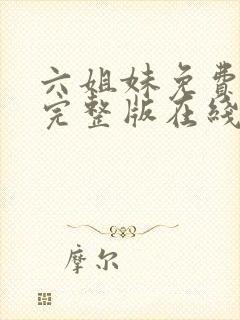 六姐妹免费
完整版在线
摩尔